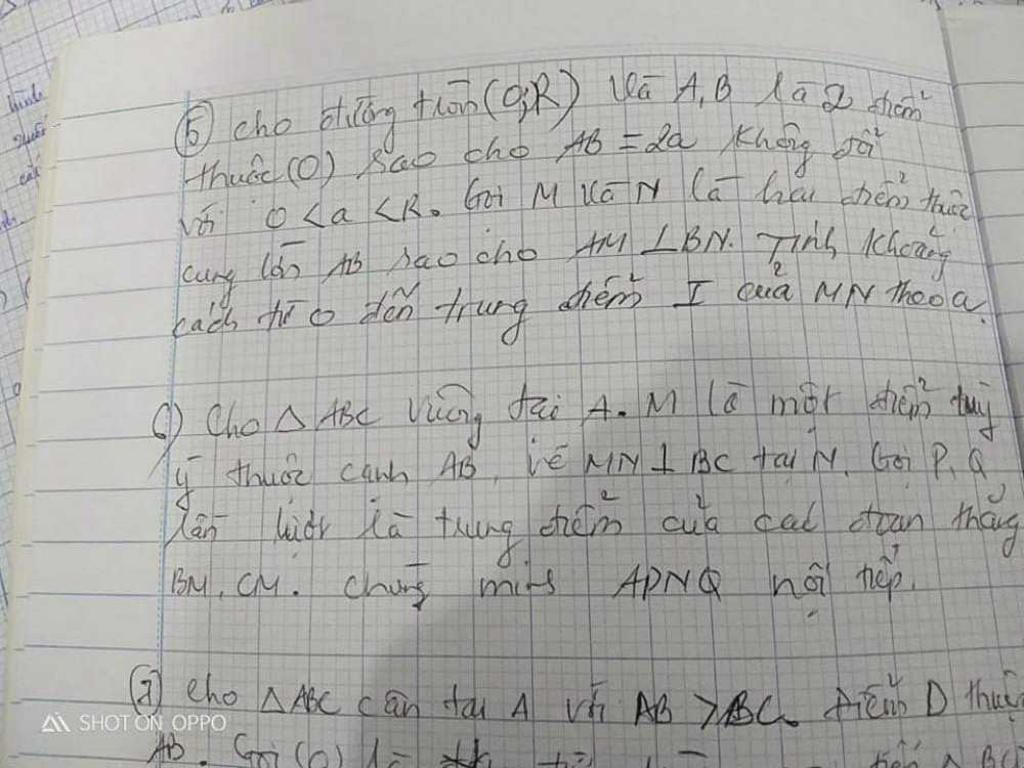 ⑤ Cho đường tròn (O;R) và A, B là 2 điểm
thuộc (O) sao cho AB = 2a không đổi
với 0 < a < R. Gọi M và N là hai điểm thuộc
cung lớn AB sao cho AM ⊥ BN. Tính khoảng
cách từ O đến trung điểm I của MN theo a.
6) Cho △ ABC vuông tại A. M là một điểm tùy
ý thuộc cạnh AB, vẽ MN ⊥ BC tại N. Gọi P, Q
lần lượt là trung điểm của các đoạn thẳng
BM, CM. Chứng minh APNQ nội tiếp.
⑦ Cho △ABC cân tại A với AB > BC. Điểm D thuộc
AB. Gọi (O) là
SHOT ON OPPO